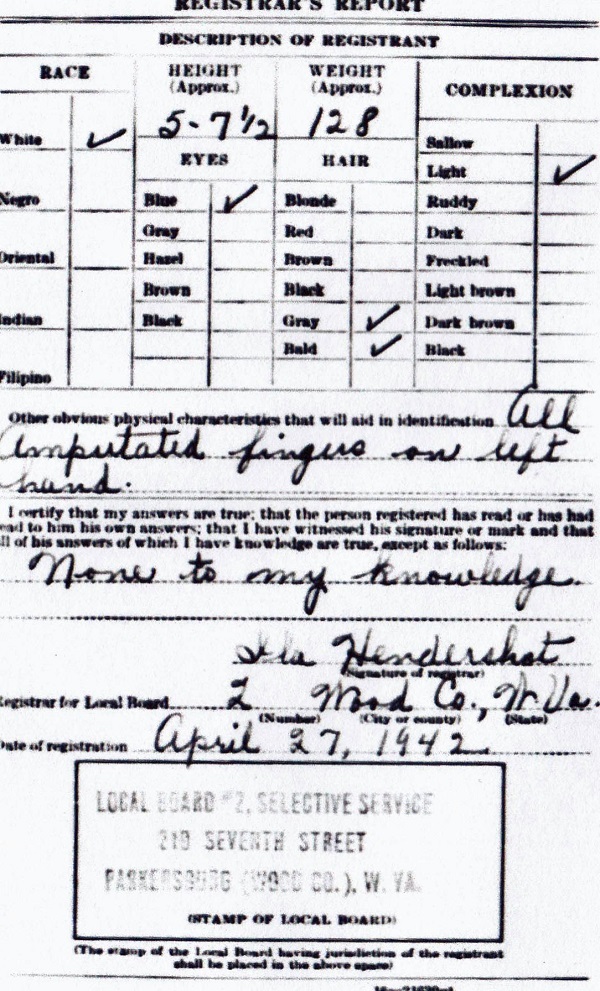 REGISTRAR'S REPORT
DESCRIPTION OF REGISTRANT
RACE
HEIGHT
(Approx.)
WEIGHT
(Approx.)
COMPLEXION
5-7 1/2
128
White ✓
EYES
HAIR
Sallow
Light ✓
Negro
Blue ✓
Blonde
Ruddy
Gray
Red
Dark
Oriental
Hazel
Brown
Freckled
Brown
Black
Light brown
Indian
Black
Gray ✓
Dark brown
Bald ✓
Black
Filipino
Other obvious physical characteristics that will aid in identification All
Amputated fingers on left
hand.
I certify that my answers are true; that the person registered has read or has had
read to him his own answers; that I have witnessed his signature or mark and that
all of his answers of which I have knowledge are true, except as follows:
None to my knowledge.
Ila Hendershot
(Signature of registrar)
Registrar for Local Board 2 Wood Co., W Va.
(Number) (City or county) (State)
Date of registration April 27, 1942
LOCAL BOARD #2, SELECTIVE SERVICE
219 SEVENTH STREET
PARKERSBURG (WOOD CO.), W. VA.
(STAMP OF LOCAL BOARD)
(The stamp of the Local Board having jurisdiction of the registrant
shall be placed in the above space)